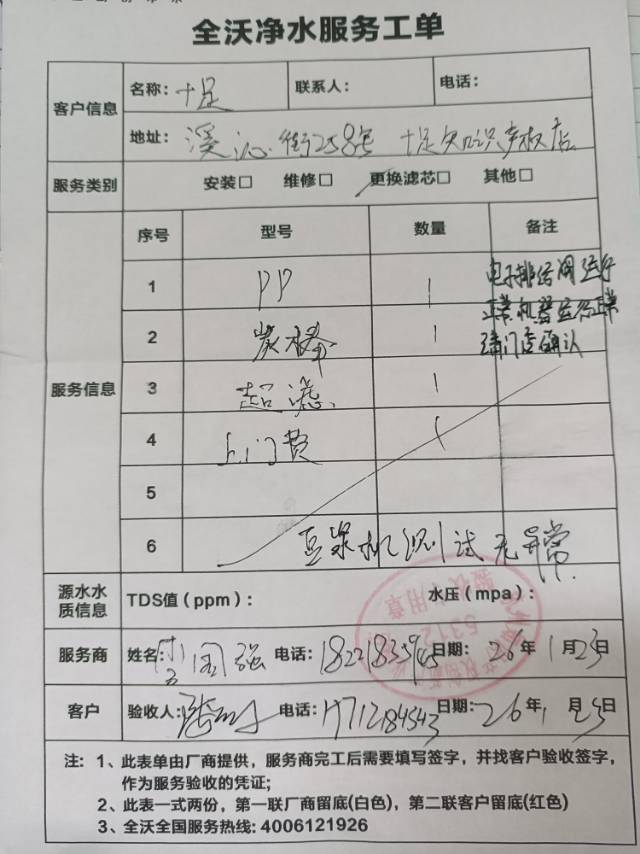 全沃净水服务工单
客户信息 名称：十足 联系人： 电话：
地址：溪沁街258号 十足知识产权店
服务类别 安装□ 维修□ 更换滤芯□ 其他□
服务信息 序号 型号 数量 备注
1 PP 1 电子排污阀运行
正常机器运行正常
2 炭棒 1 请门店确认
3 超滤 1
4 上门费 1
5
6 豆浆机测试无异常
源水水质信息 TDS值（ppm）： 水压（mpa）：
验收专用章
5312
服务商 姓名： 国强 电话： 日期：26年1月23日
客户 验收人： 电话：17712184543 日期：26年1月23日
注：1、此表单由厂商提供，服务商完工后需要填写签字，并找客户验收签字，
作为服务验收的凭证;
2、此表一式两份，第一联厂商留底(白色)，第二联客户留底(红色)
3、全沃全国服务热线: 4006121926